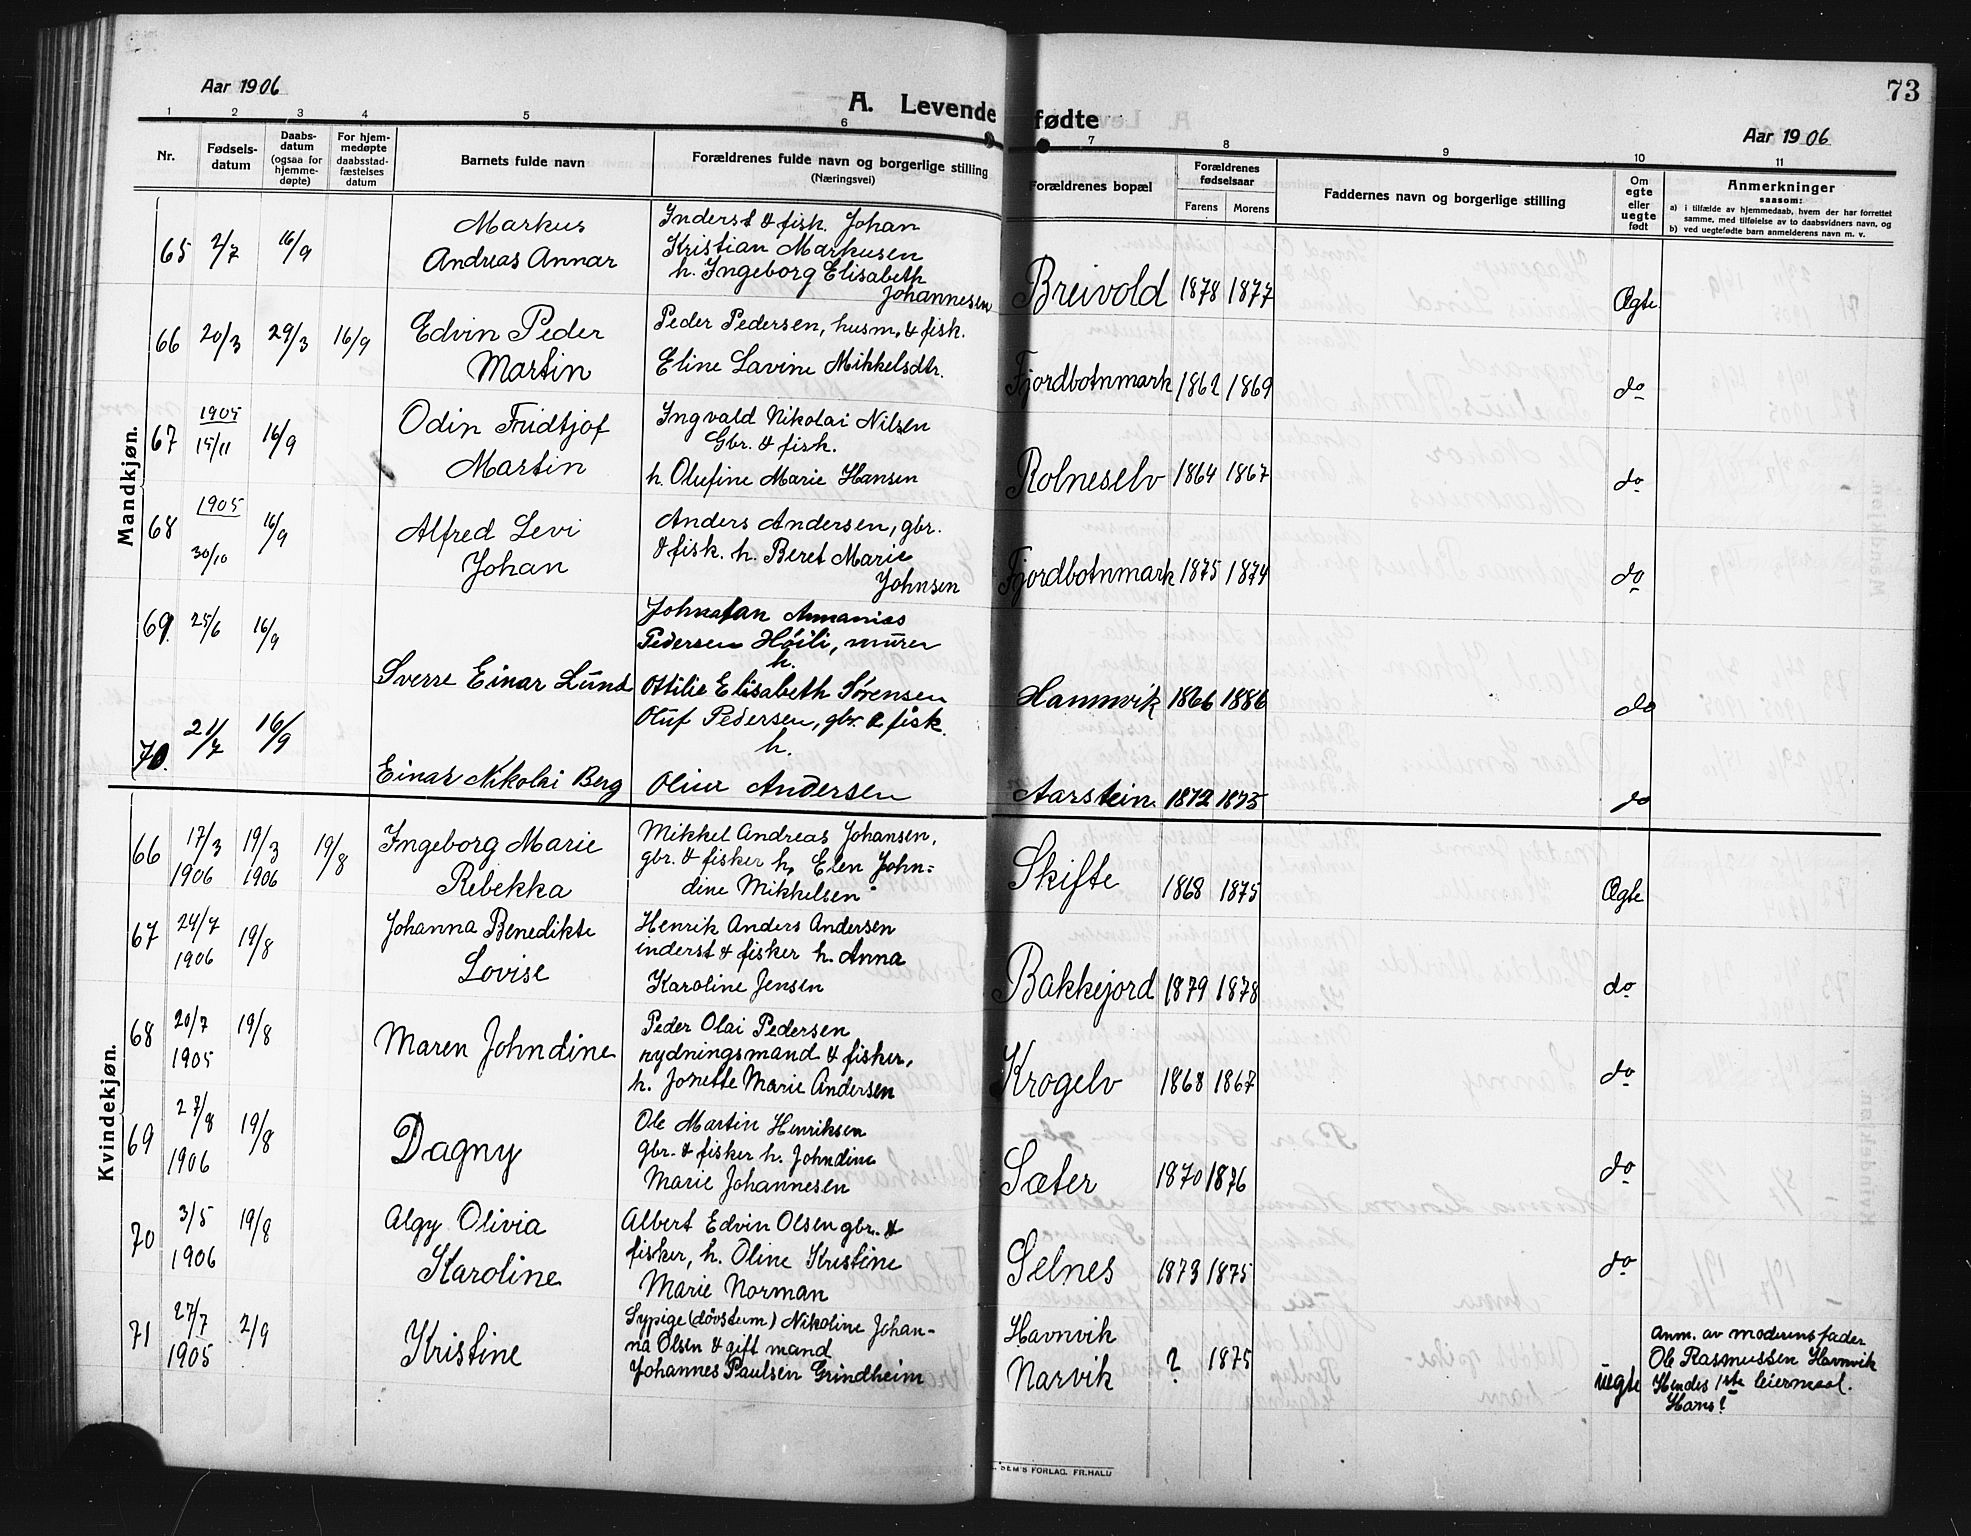 73
Aar 1906
A. Levendefødte
Aar 1906
1 2 3 4 5 6 7 8 9 10 11
Nr.
Fødsels-
datum
Daabs-
datum
(ogsaa for
hjemme-
døpte)
For hjem-
medøpte
daabsstad-
fæstelses
datum
Barnets fulde navn
Forældrenes fulde navn og borgerlige stilling
(Næringsvei)
Forældrenes bopæl
Forældrenes
fødselsaar
Farens Morens
Faddernes navn og borgerlige stilling
Om
egte
eller
uegte
født
Anmerkninger
saasom:
a) i tilfælde av hjemmedaab, hvem der har forrettet
samme, med tilføielse av to daabsvidners navn, og
b) ved uegtefødte barn anmelderens navn m. v.
Mandkjøn.
65 2/7 16/9
Markus
Andreas Annar
Inderst & fisk. Johan
Kristian Markusen
h. Ingeborg Elisabeth
Johannesen
Breivold 1878 1877 Ægte
66 20/3 29/3 16/9
Edvin Peder
Martin
Peder Pedersen, husm. & fisk.
Eline Lavine Mikkelsdtr.
Fjordbotnmark 1862 1869 do
67 1905 15/11 16/9
Odin Fridtjof
Martin
Ingvald Nikolai Nilsen
Gbr. & fisk.
h. Olufine Marie Hansen
Rolneselv 1864 1867 do
68 1905 30/10 16/9
Alfred Levi
Johan
Anders Andersen, gbr.
& fisk. h. Beret Marie
Johnsen
Fjordbotnmark 1875 1874 do
69. 25/6 16/9
Sverre Einar Lund
Johnatan Annanias
Pedersen Høili, murer
h.
Ottilie Elisabeth Sørensen
Hamnvik 1866 1886 do
70. 21/7 16/9
Einar Nikolai Berg
Oluf Pedersen, gbr. & fisk.
h.
Oline Andersen
Aarstein. 1872 1875 do
Kvindekjøn.
66 17/3 1906 19/3 1906 19/8
Ingeborg Marie
Rebekka
Mikkel Andreas Johansen,
gbr. & fisker h. Elen John=
dine Mikkelsen
Skifte 1868 1875 Ægte
67 24/7 1906 19/8
Johanna Benedikte
Lovise
Henrik Anders Andersen
inderst & fisker h. Anna
Karoline Jensen
Bakkejord 1879 1878 do
68 20/7 1905 19/8
Maren Johndine
Peder Olai Pedersen
rydningsmand & fisker,
h. Jonette Marie Andersen
Krogelv 1868 1867 do
69 27/8 1906 19/8
Dagny
Ole Martin Henriksen
gbr. & fisker h. Johndine
Marie Johannesen
Sæter 1870 1876 do
70 3/5 1906 19/8
Algy Olivia
Karoline
Albert Edvin Olsen gbr. &
fisker, h. Oline Kristine
Marie Norman
Selnes 1873 1875 do
71 27/7 1905 2/9
Kristine
Sypige (døvstum) Nikoline Johan-
na Olsen & gift mand
Johannes Paulsen Grindheim
Havnvik
Narvik ? 1875 uegte
Anm. av moderens fader
Ole Rasmussen Havnvik
Hendes 1ste leiermaal.
Hans?
SEM'S FORLAG. FR.HALD